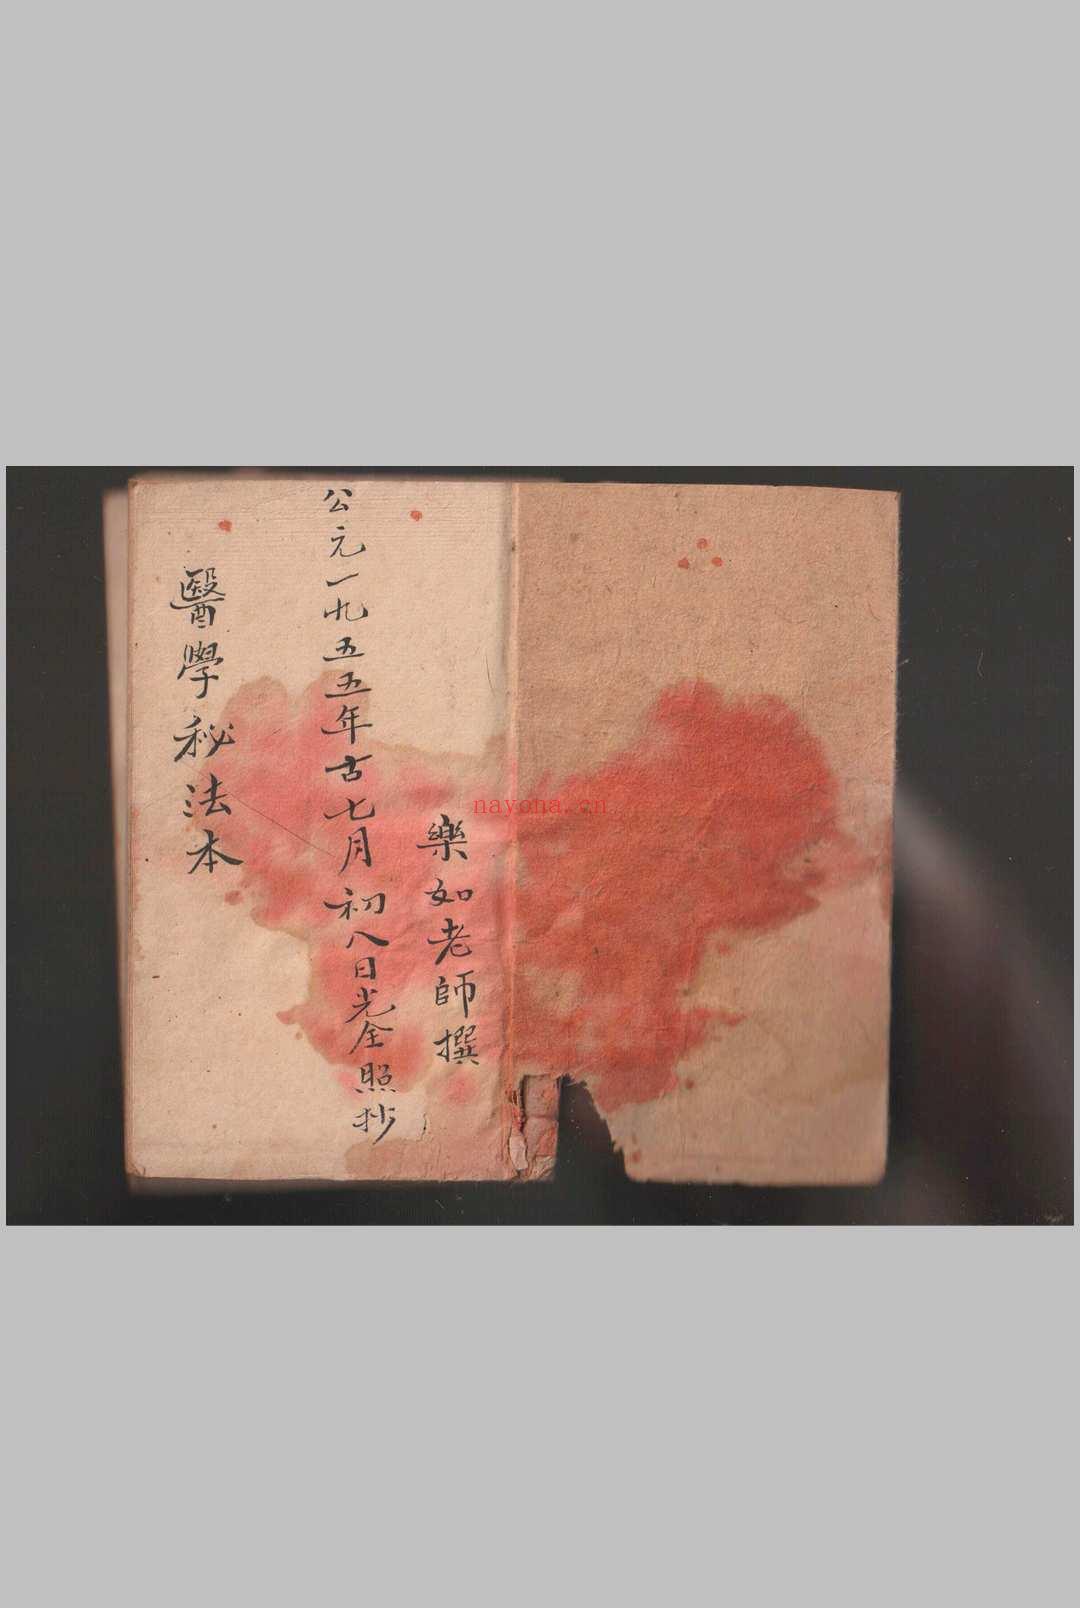 樂如老師撰
公元一九五五年古七月初八日光全照抄
醫學秘法本
nayona.cn